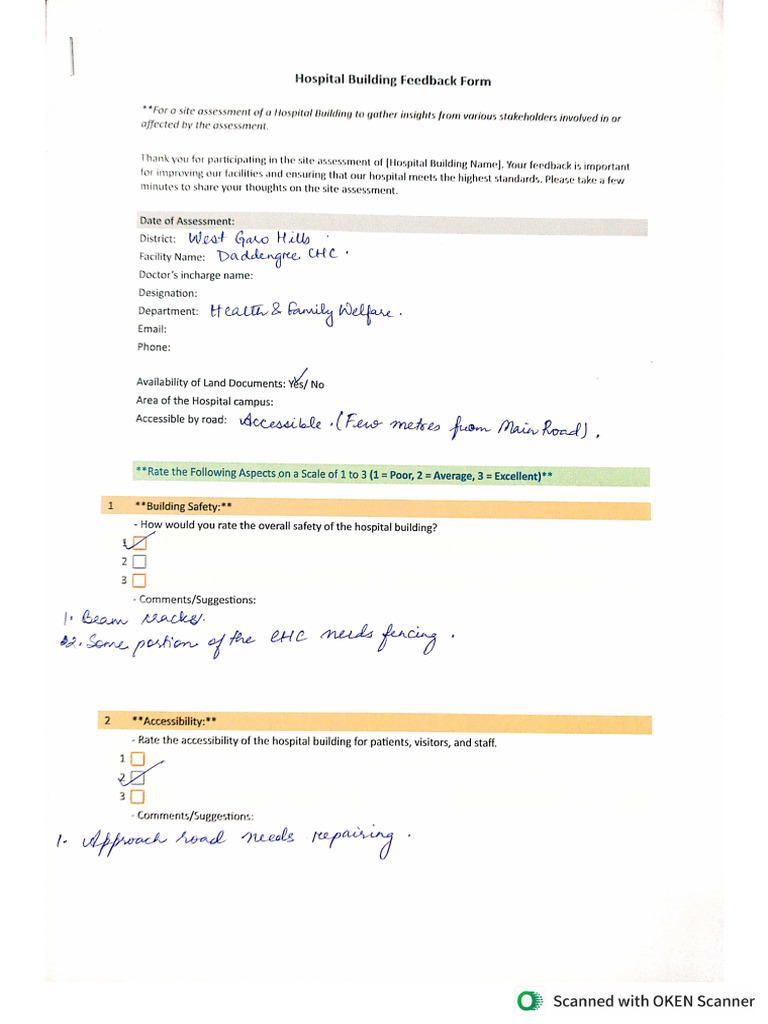 Hospital Building Feedback Form
**For a site assessment of a Hospital Building to gather insights from various stakeholders involved in or
affected by the assessment.
Thank you for participating in the site assessment of [Hospital Building Name]. Your feedback is important
for improving our facilities and ensuring that our hospital meets the highest standards. Please take a few
minutes to share your thoughts on the site assessment.
Date of Assessment:
District: West Garo Hills
Facility Name: Daddengree CHC.
Doctor's incharge name:
Designation:
Department: Health & Family Welfare.
Email:
Phone:
Availability of Land Documents: Yes/ No
Area of the Hospital campus:
Accessible by road: Accessible. (Few metres from Main Road).
**Rate the Following Aspects on a Scale of 1 to 3 (1 = Poor, 2 = Average, 3 = Excellent)**
1 **Building Safety:**
- How would you rate the overall safety of the hospital building?
1
2
3
- Comments/Suggestions:
1. Beam cracks.
2. Some portion of the CHC needs fencing.
2 **Accessibility:**
- Rate the accessibility of the hospital building for patients, visitors, and staff.
1
2
3
- Comments/Suggestions:
1. Approach road needs repairing.
Scanned with OKEN Scanner